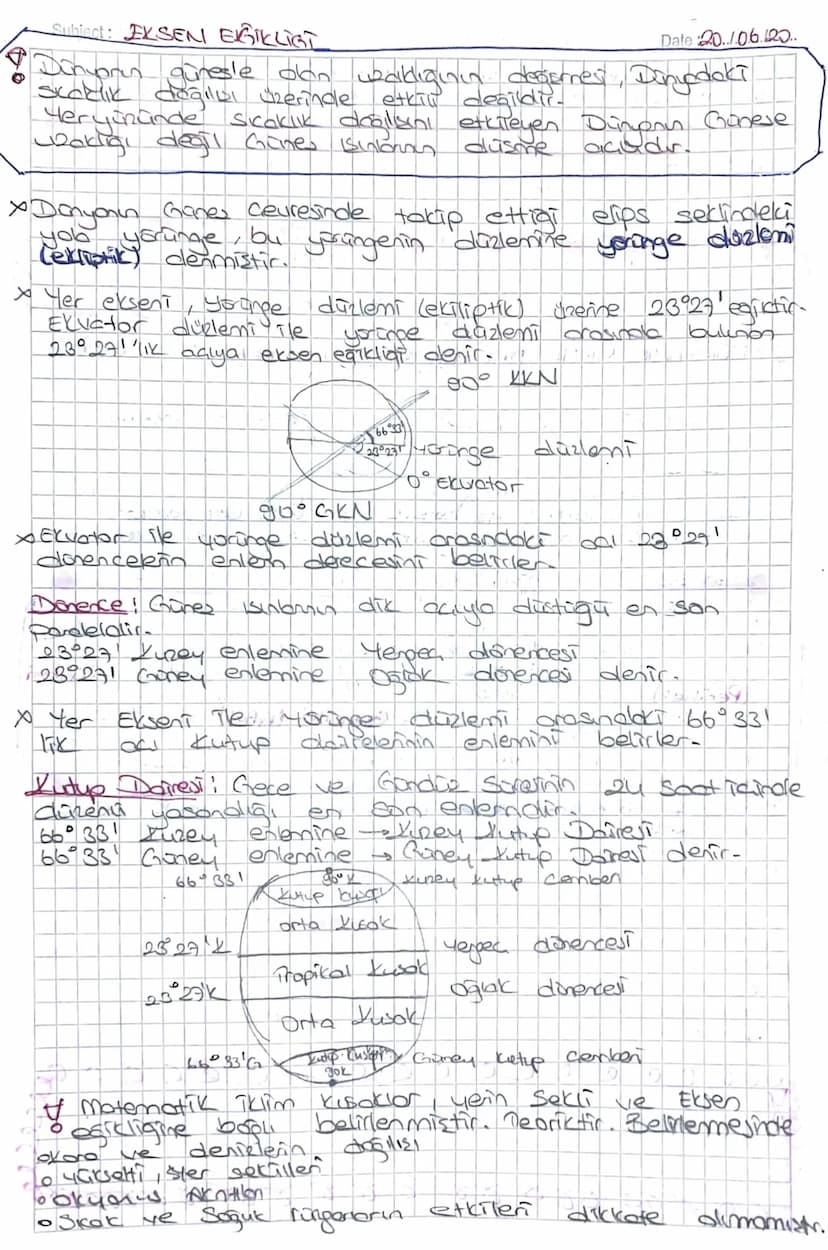 Subject: EKSEN EĞİKLİĞİ
Date 20../06./20..
Dünyanın güneşle olan uzaklığının değişmesi, Dünyadaki
sıcaklık dağılışı üzerinde etkili değildir.
Yeryüzünde sıcaklık dağılışını etkileyen Dünyanın Güneşe
uzaklığı değil Güneş ışınlarının düşme açısıdır.
x Dünyanın Güneş çevresinde takip ettiği elips şeklindeki
yola yörünge, bu yörüngenin düzlemine yörünge düzlemi
(ekliptik) denmiştir.
x Yer ekseni, yörünge düzlemi (ekiliptik) üzerine 23°27' eğiktir.
Ekvator düzlemi ile yörünge düzlemi arasında bulunan
23°27' 'lık açıya eksen eğikliği denir.
90° KKN
66°33'
23°27'
yörünge düzlemi
0° Ekvator
90° GKN
x Ekvator ile yörünge düzlemi arasındaki açı 23°27'
dönencelerin enlem derecesini belirler.
Dönence: Güneş ışınlarının dik açıyla düştüğü en son
paraleldir.
23°27' Kuzey enlemine Yengeç dönencesi
23°27' Güney enlemine Oğlak dönencesi denir.
x Yer Ekseni ile yörünge düzlemi arasındaki 66°33'
lik açı kutup dairelerinin enlemini belirler.
Kutup Dairesi: Gece ve Gündüz Süresinin 24 saat içinde
düzenli yaşandığı en son enlemdir.
66°33' Kuzey enlemine → Kuzey Kutup Dairesi
66°33' Güney enlemine → Güney Kutup Dairesi denir.
66°33' 90°K Kuzey kutup çemberi
Kutup kuşağı
Orta Kuşak
23°27'K Yengeç dönencesi
Tropikal Kuşak
23°27K Oğlak dönencesi
Orta Kuşak
66°33'G Kutup Kuşağı Güney kutup çemberi
90K
Matematik iklim kuşaklar, yerin şekli ve Eksen
eğikliğine bağlı belirlenmiştir. Teoriktir. Belirlemesinde
o kara ve denizlerin dağılışı
o yükselti, yer şekilleri
o Okyanus Akıntıları
o Sıcak ve Soğuk rüzgarların etkileri dikkate alınmamıştır.